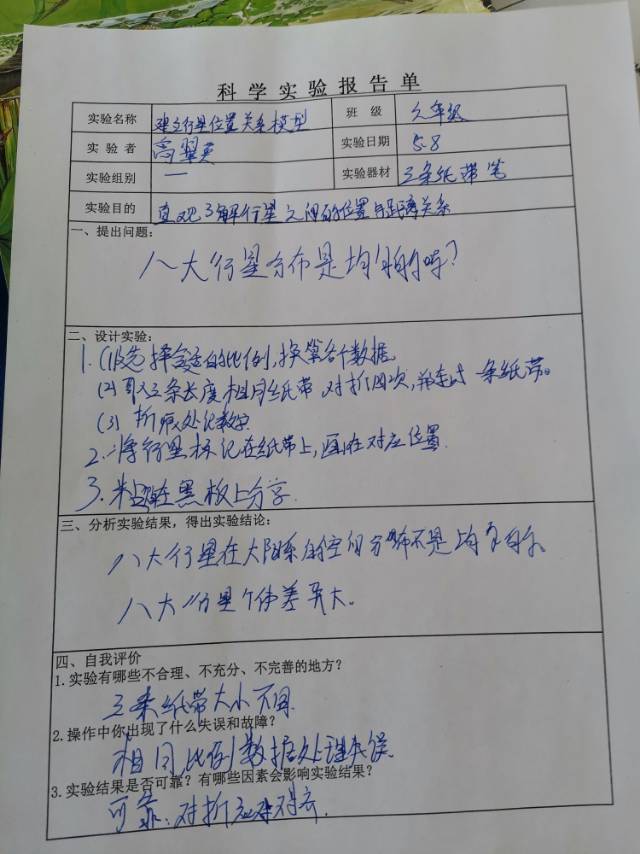 科学实验报告单
实验名称 建立行星位置关系模型 班级 六年级
实验者 高翌 实验日期 5.8
实验组别 一 实验器材 三条纸带 笔
实验目的 直观了解行星之间的位置与距离关系
一、提出问题：
八大行星分布是均匀的吗?
二、设计实验：
1.(1)先择合适的比例,换算各个数据
(2)取三条长度相同纸带,对折四次,一条纸带。
(3)折痕处记数字
2.将行星标记在纸带上,画在对应位置.
3.粘贴在黑板上分享.
三、分析实验结果，得出实验结论：
八大行星在太阳系的空间分布不是均匀的。
八大行星个体差异大。
四、自我评价
1.实验有哪些不合理、不充分、不完善的地方？
三条纸带大小不同
2.操作中你出现了什么失误和故障？
相同比例数据处理失误.
3.实验结果是否可靠？有哪些因素会影响实验结果？
可靠.对折应对齐.